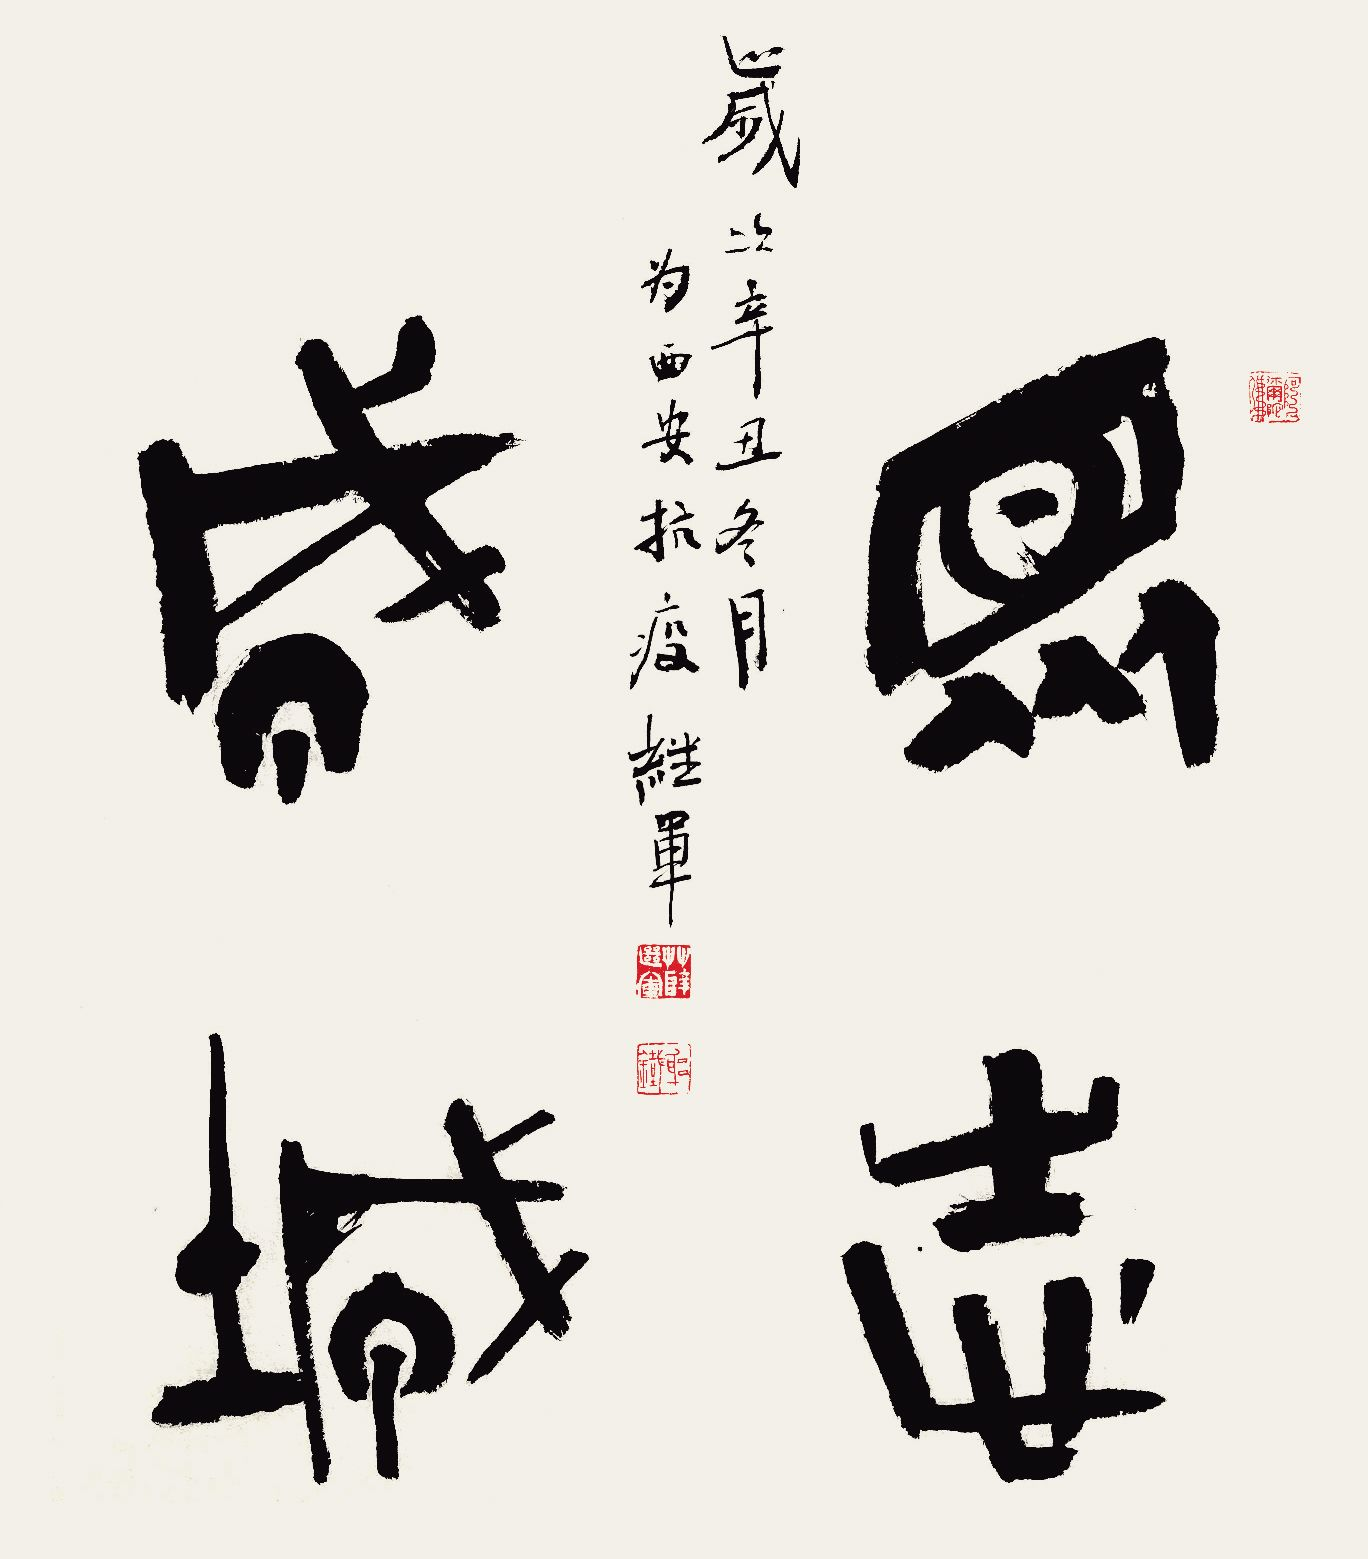 眾志
歲次辛丑冬月
为西安抗疫継軍
成城